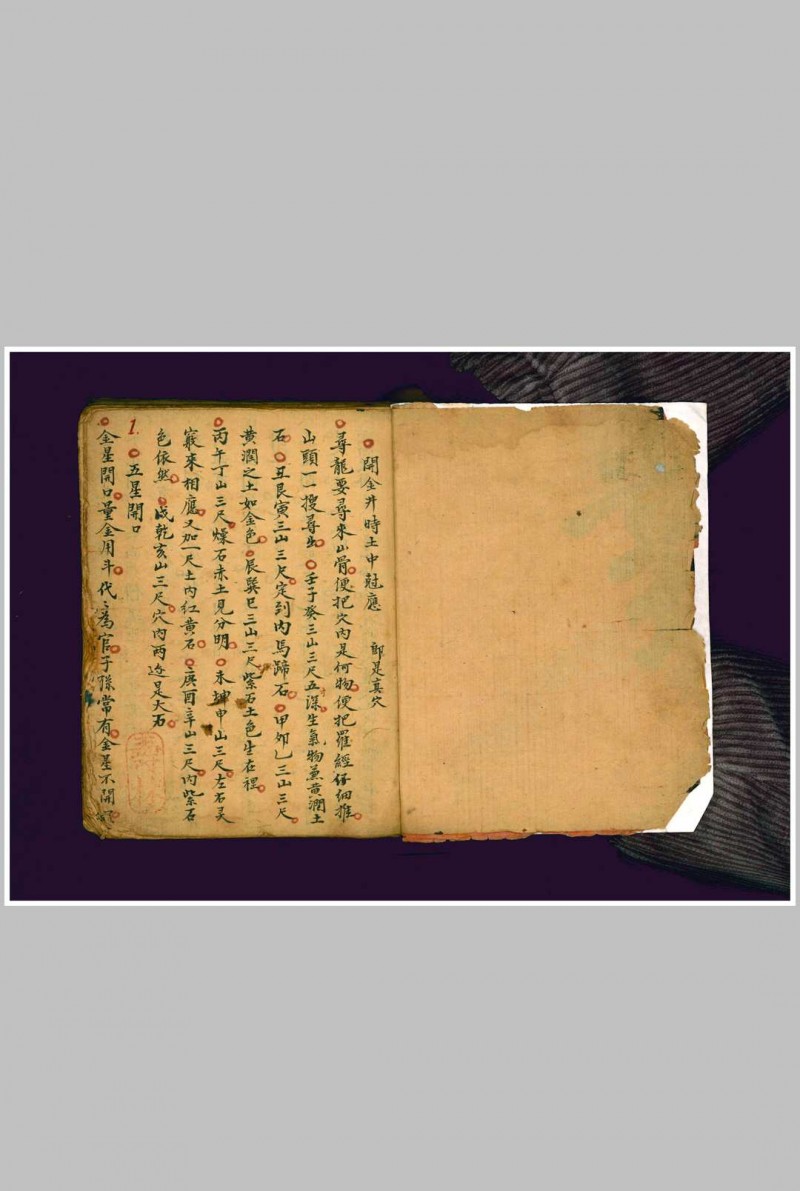 開金井時土中尅應 即是真穴
尋龍要尋來山骨便把穴内是何物便把羅經仔細推
山頭一一搜尋出 壬子癸三山三尺五深生氣物兼黄潤土
石 丑艮寅三山三尺定到内馬蹄石 甲卯乙三山三尺
黄潤之土如金色 辰巽巳三山三尺紫石土色生在裡
丙午丁山三尺爍石赤土見分明 未坤申山三尺左右灵
窽來相應又加一尺土内红黄石 庚酉辛山三尺内紫石
色依然 戌乾亥山三尺穴内两边是大石
1. 五星開口
金星開口量金用斗代〻爲官子孫常有金星不開